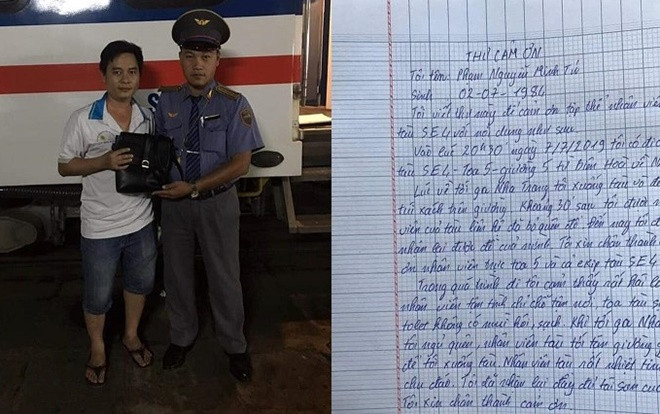 THƯ CẢM ƠN
Tôi tên: Phạm Nguyễn Minh Tú
Sinh 02-07-1984
Tôi viết thư này để cảm ơn tập thể nhân viên
tàu SE4 với nội dung như sau.
Vào lúc 20h30 ngày 7/7/2019 tôi có đi
tàu SE4 - Toa 5 - giường 5 từ Biên Hoà về N
Lúc về tới ga Nha Trang tôi xuống tàu và để
túi xách trên giường. Khoảng 30 sau tôi được n
viên của tàu liên hệ do bỏ quên đồ. Đến nay tôi đ
nhận lại được đồ của mình. Tôi xin chân thành
ơn nhân viên trực toa 5 và cả ekip tàu SE4
Trong quá trình đi tôi cảm thấy rất hài l
nhân viên tận tình chỉ chỗ tận nơi, toa tàu s
tolet không có mùi hôi, sạch. Khi tới ga Nha
tôi ngủ quên, nhân viên tàu tới tận giường g
để tôi xuống tàu. Nhân viên tàu rất nhiệt tìn
chu đáo. Tôi đã nhận lại đầy đủ tài sản củ
Tôi xin chân thành cảm ơn